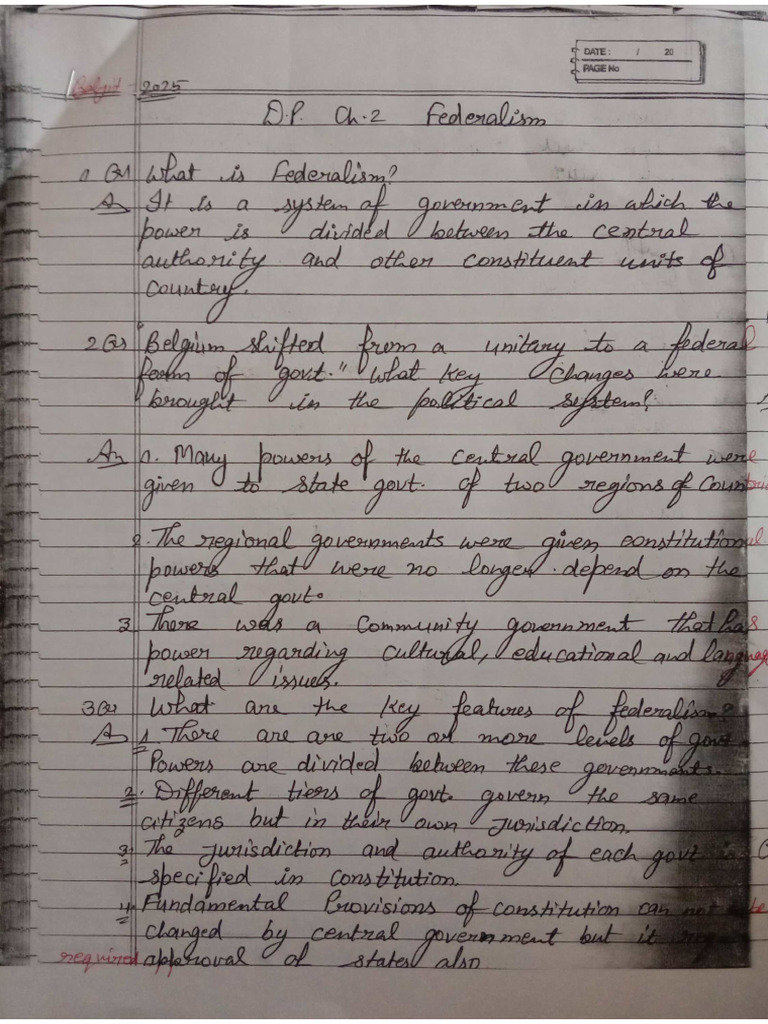 DATE: / 20
PAGE No
Baljit - 2025
D.P. Ch.2 Federalism
1 Qs What is Federalism?
A It is a system of government in which the
power is divided between the central
authority and other constituent units of
country.
2 Qs Belgium shifted from a unitary to a federal
form of govt." What key changes were
brought in the political system?
An 1. Many powers of the central government were
given to state govt. of two regions of Countries
2. The regional governments were given constitutional
powers that were no longer depend on the
central govt.
3. There was a community government that has
power regarding cultural, educational and language
related issues.
3 Qs What are the key features of federalism?
A 1. There are are two or more levels of govt.
Powers are divided between these governments.
2. Different tiers of govt. govern the same
citizens but in their own jurisdiction.
3. The jurisdiction and authority of each govt is
specified in constitution.
4. Fundamental Provisions of constitution can not be
changed by central government but it
required approval of states also